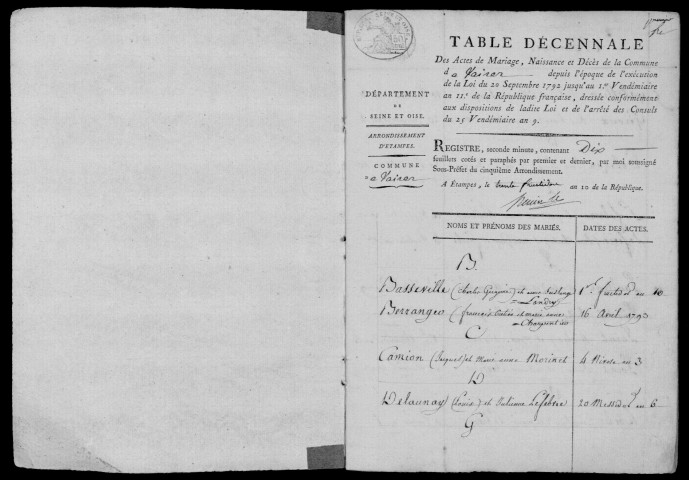 TABLE DÉCENNALE
Des Actes de Mariage, Naissance et Décès de la Commune
depuis l'époque de l'exécution
de la Loi du 20 Septembre 1792 jusqu'au 1.er Vendémiaire
an 11.e de la République française, dressée conformément
aux dispositions de ladite Loi et de l'arrêté des Consuls
du 25 Vendémiaire an 9.
DÉPARTEMENT
DE
SEINE ET OISE.
ARRONDISSEMENT
D'ETAMPES.
COMMUNE
REGISTRE, seconde minute, contenant Dix
feuillets cotés et paraphés par premier et dernier, par moi soussigné
Sous-Préfet du cinquième Arrondissement.
A Étampes, le trente fructidor an 10 de la République.
NOMS ET PRÉNOMS DES MARIÉS. DATES DES ACTES.
B.
Basseville (Charles Grégoire) et anne
Landry 1er fructidor an 10
Berranger (françois et marie anne
Charpentier 16 Avril 1793
C
Camion (Jacques) et Marie anne Morinet 4 Nivose an 3
D
Delaunay (Louis) et Julienne Lefebvre 20 Messidor an 6
G